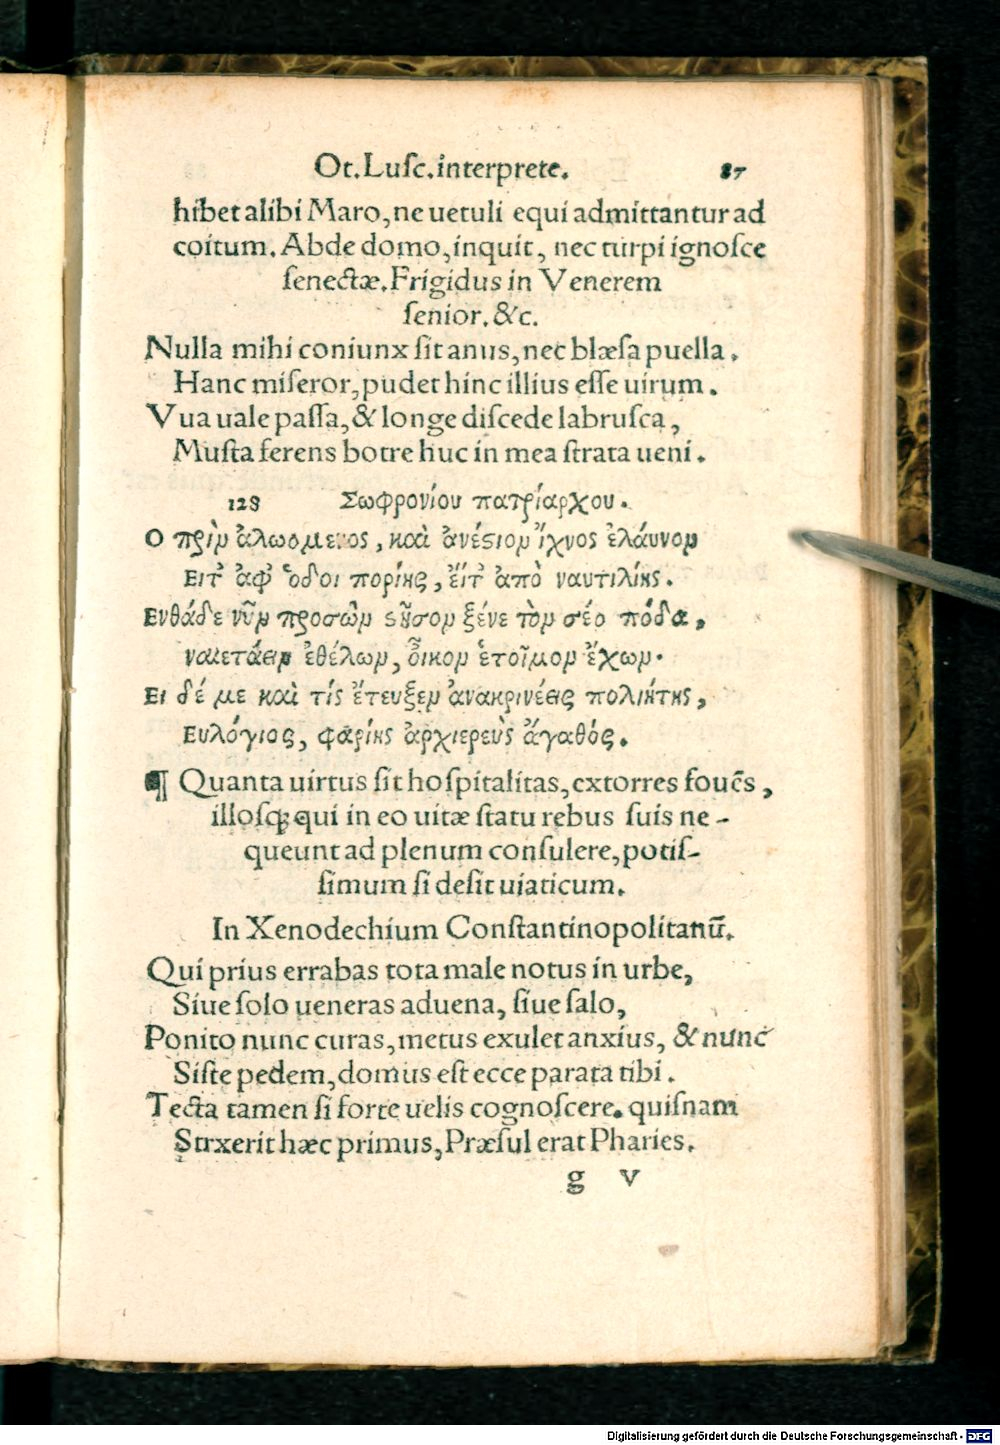 Ot. Luſc. interprete. 87
hibet alibi Maro, ne uetuli equi admittantur ad
coitum. Abde domo, inquit, nec turpi ignoſce
ſenectæ. Frigidus in Venerem
ſenior. &c.
Nulla mihi coniunx ſit anus, nec blæſa puella.
Hanc miſeror, pudet hinc illius eſſe uirum.
Vua uale paſſa, & longe diſcede labruſca,
Muſta ferens botre huc in mea ſtrata ueni.
128 Σωφρονίου πατρίαρχου.
Ο πρὶν ἀλωόμενος, καὶ ἀνέστιον ἴχνος ἐλάυνον
Ειτ' ἀφ' ὁδοι πορίης, εἴτ' ἀπὸ ναυτιλίης.
Ενθάδε νῦν προσὼν στῆσον ξένε τὸν σέο πόδα,
ναιετάειν ἐθέλων, οἶκον ἑτοῖμον ἔχων.
Ει δέ με καὶ τίς ἔτευξεν ἀνακρινέεις πολιήτης,
Ευλόγιος, φαρίης ἀρχιερεὺς ἄγαθός.
¶ Quanta uirtus ſit hoſpitalitas, extorres fouēs,
illoſq; qui in eo uitæ ſtatu rebus ſuis ne-
queunt ad plenum conſulere, potiſ-
ſimum ſi deſit uiaticum.
In Xenodechium Conſtantinopolitanū.
Qui prius errabas tota male notus in urbe,
Siue ſolo ueneras aduena, ſiue ſalo,
Ponito nunc curas, metus exulet anxius, & nunc
Siſte pedem, domus eſt ecce parata tibi.
Tecta tamen ſi forte uelis cognoſcere. quiſnam
Strxerit hæc primus, Præſul erat Pharies.
g v
Digitalisierung gefördert durch die Deutsche Forschungsgemeinschaft - DFG